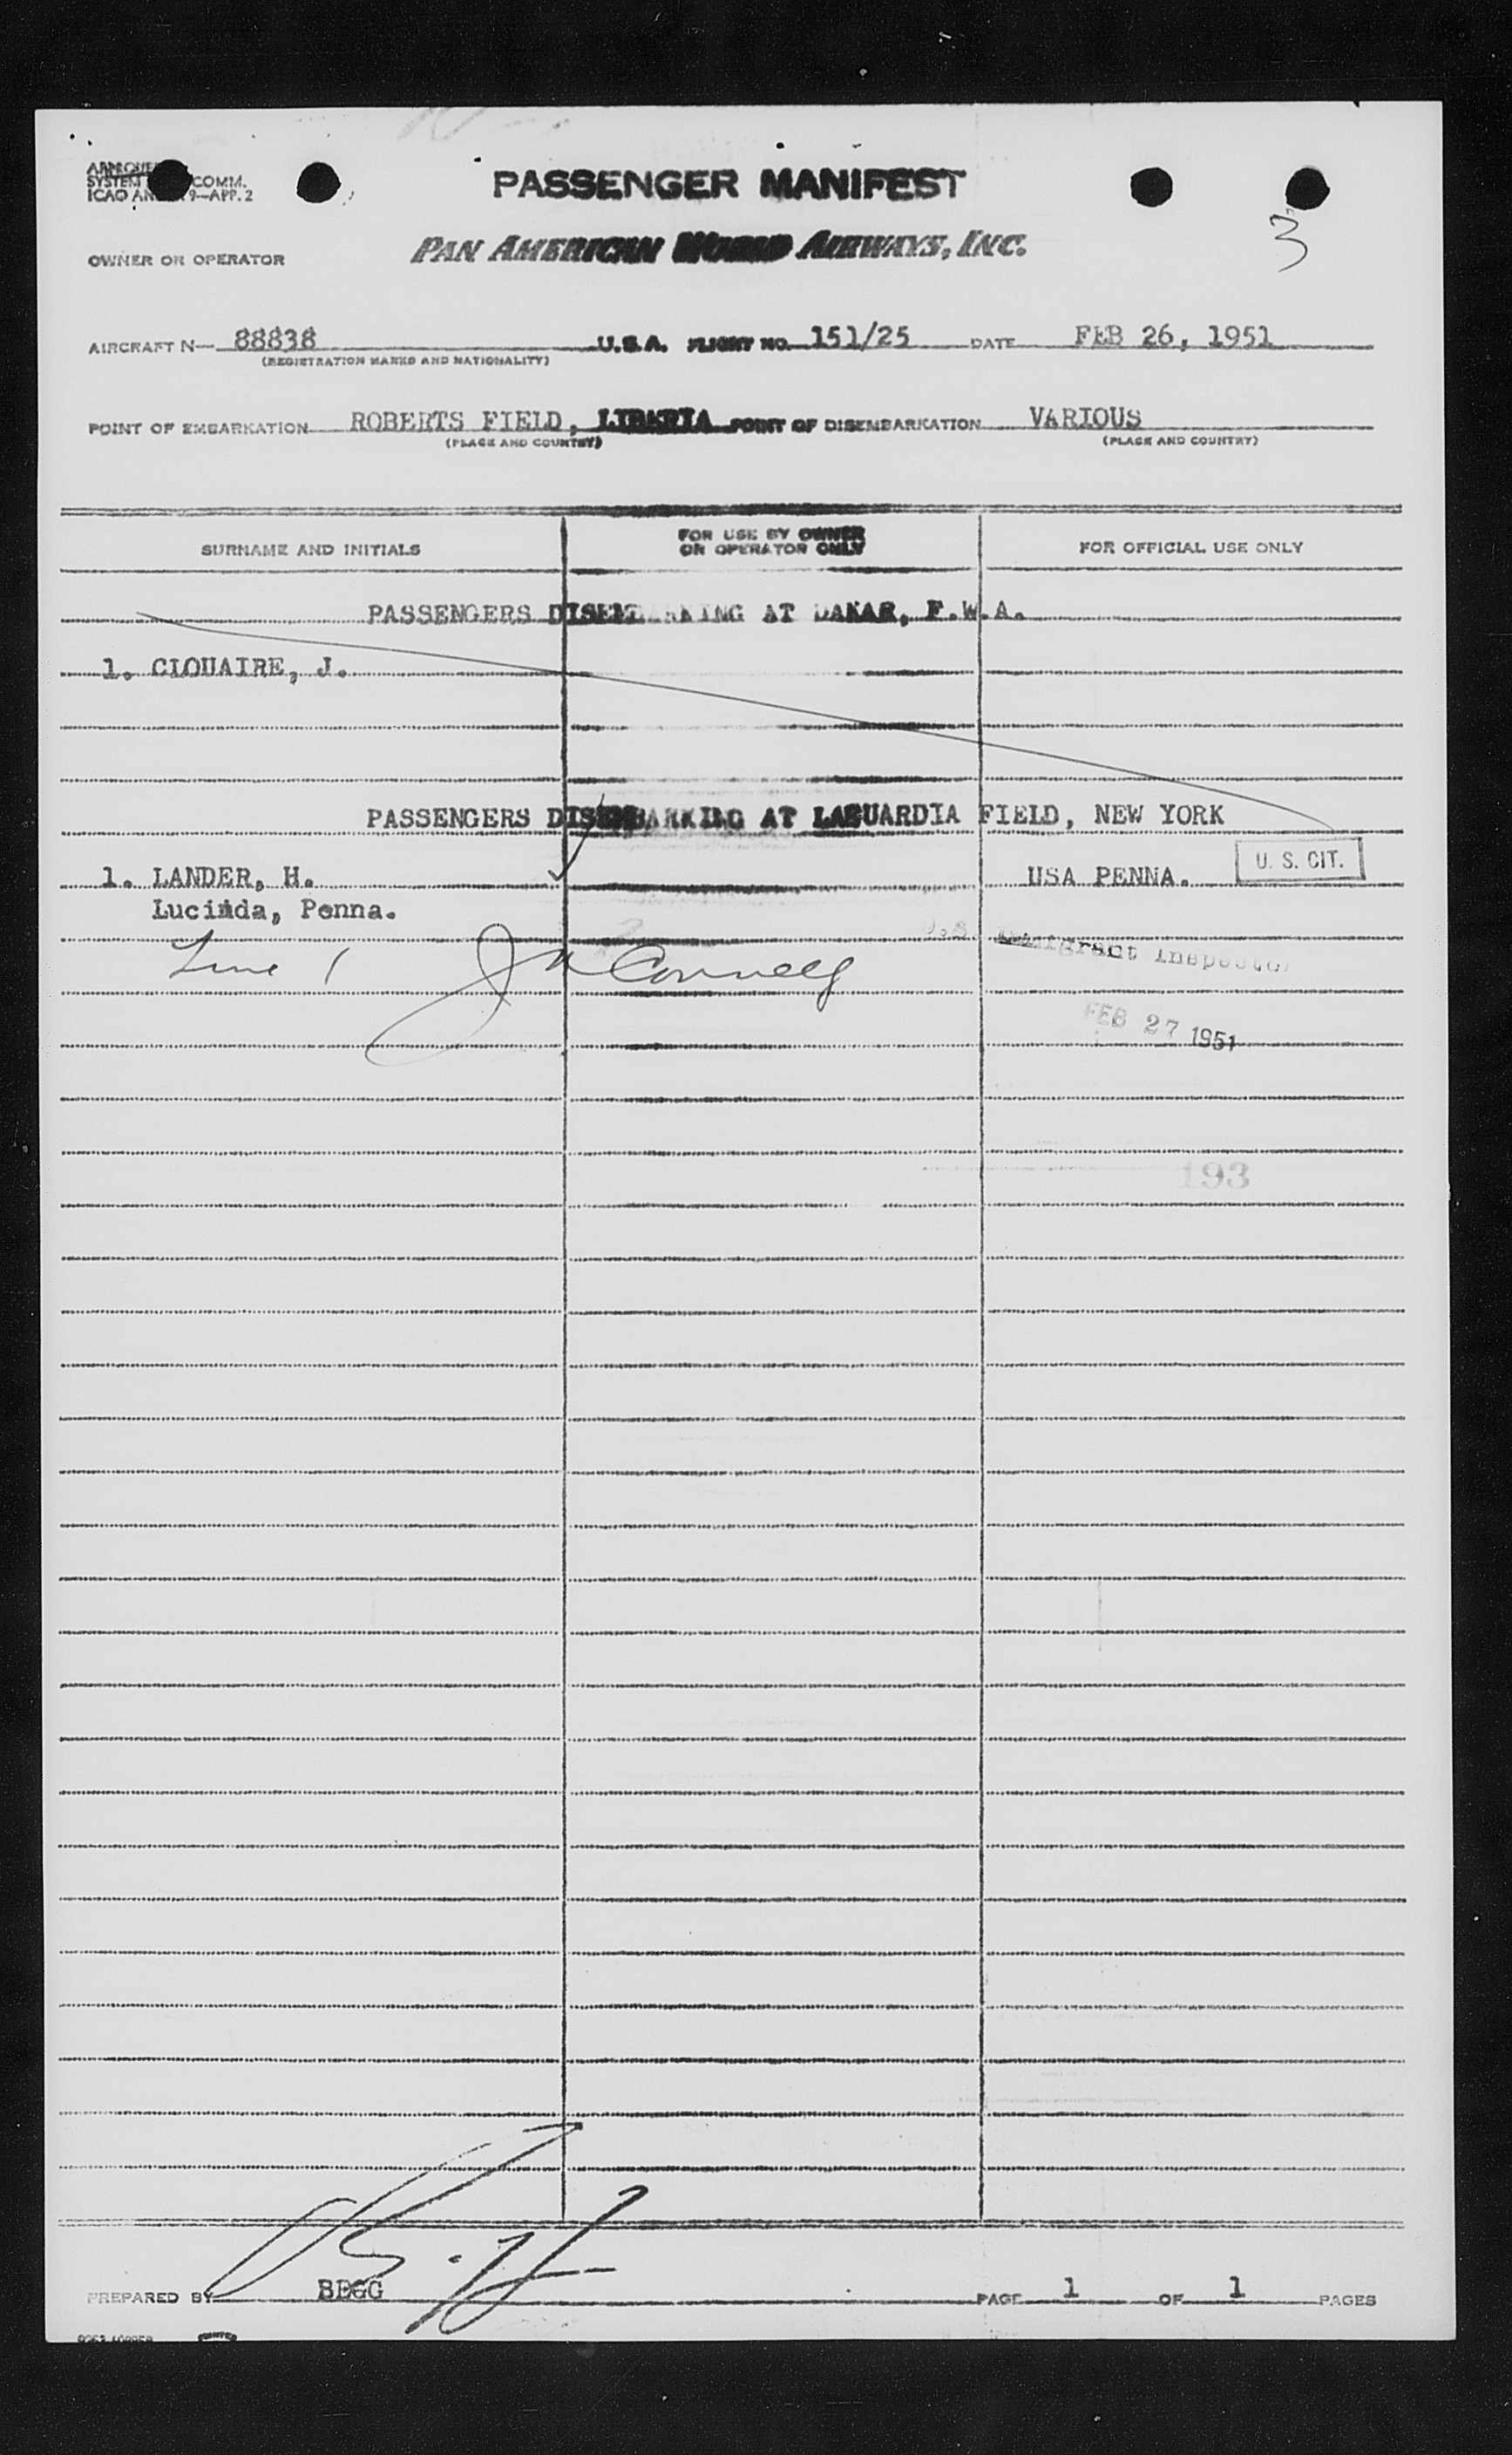 PASSENGER MANIFEST
SYSTEM COMM.
ICAO 9—APP. 2
3
OWNER OR OPERATOR PAN AMERICAN WORLD AIRWAYS, INC.
AIRCRAFT N— 88838 U.S.A. FLIGHT NO. 151/25 DATE FEB 26, 1951
(REGISTRATION MARKS AND NATIONALITY)
POINT OF EMBARKATION ROBERTS FIELD, LIBERIA POINT OF DISEMBARKATION VARIOUS
(PLACE AND COUNTRY) (PLACE AND COUNTRY)
SURNAME AND INITIALS FOR USE BY OWNER OR OPERATOR ONLY FOR OFFICIAL USE ONLY
PASSENGERS DISEMBARKING AT DAKAR, F.W.A.
1. CLOUAIRE, J.
PASSENGERS DISEMBARKING AT LAGUARDIA FIELD, NEW YORK
1. LANDER, H. USA PENNA. U. S. CIT.
Lucinda, Penna.
Line 1 J McConnell
U.S. Immigrant Inspector
FEB 27 1951
193
PREPARED BY BEGG PAGE 1 OF 1 PAGES